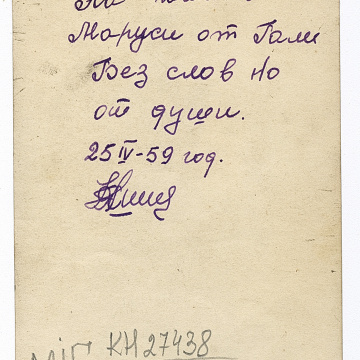 Маруси от Гали
Без слов но
от души.
25 IV-59 год.
КН 27438